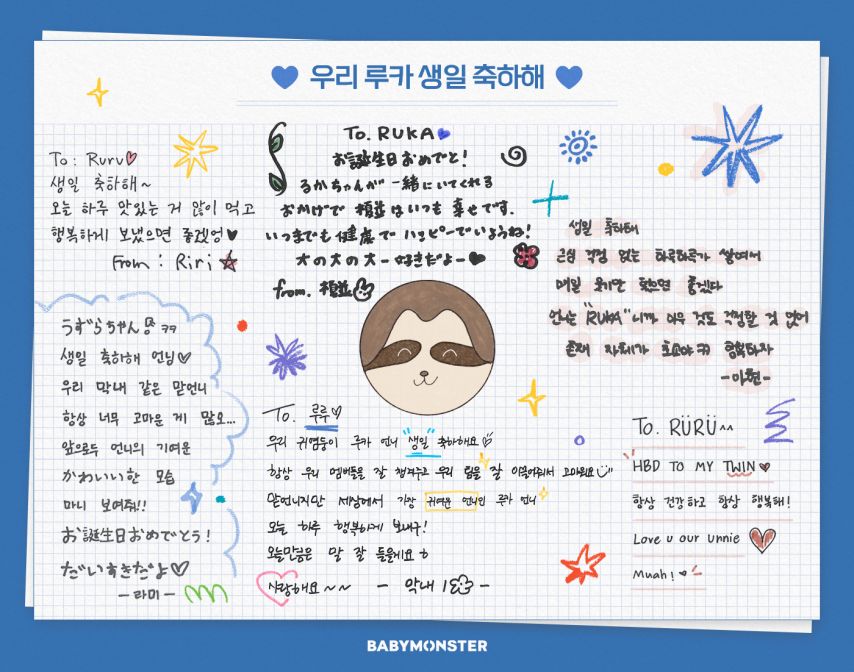 우리 루카 생일 축하해
To : Ruru
생일 축하해~
오늘 하루 맛있는 거 많이 먹고
행복하게 보냈으면 좋겠엉
From : Riri
To. RUKA
お誕生日おめでと!
るかちゃんが 一緒にいてくれる
おかげで 横並はいつも 幸せです.
いつまでも健康で ハッピーでいようね!
大の大の大ー好きだよー
from.
생일 축하해
근심 걱정 없는 하루하루가 쌓여서
매일 웃기만 했으면 좋겠다
언니는 "RUKA"니까 아무 것도 걱정할 것 없어
존재 자체가 최고야ㅋㅋ 행복하자
-아현-
うずらちゃん ㅋㅋ
생일 축하해 언님
우리 막내 같은 맏언니
항상 너무 고마운 게 많오...
앞으로두 언니의 기여운
かわいい한 모습
마니 보여줘!!
お誕生日おめでとう!
だいすきだよ
-라미-
To. 루루
우리 귀염둥이 루카 언니 "생일" 축하해요
항상 우리 멤버들을 잘 챙겨주고 우리 팀을 잘 이끌어줘서 고마워요
맏언니지만 세상에서 가장 귀여운 언니인 루카 언니
오늘 하루 행복하게 보내구!
오늘만큼은 말 잘 들을게요 ㅎ
사랑해요 ~~ - 막내 -
To. RÜRÜ^^
HBD TO MY TWIN
항상 건강하고 항상 행복해!
Love u our unnie
Muah!
BABYMONSTER